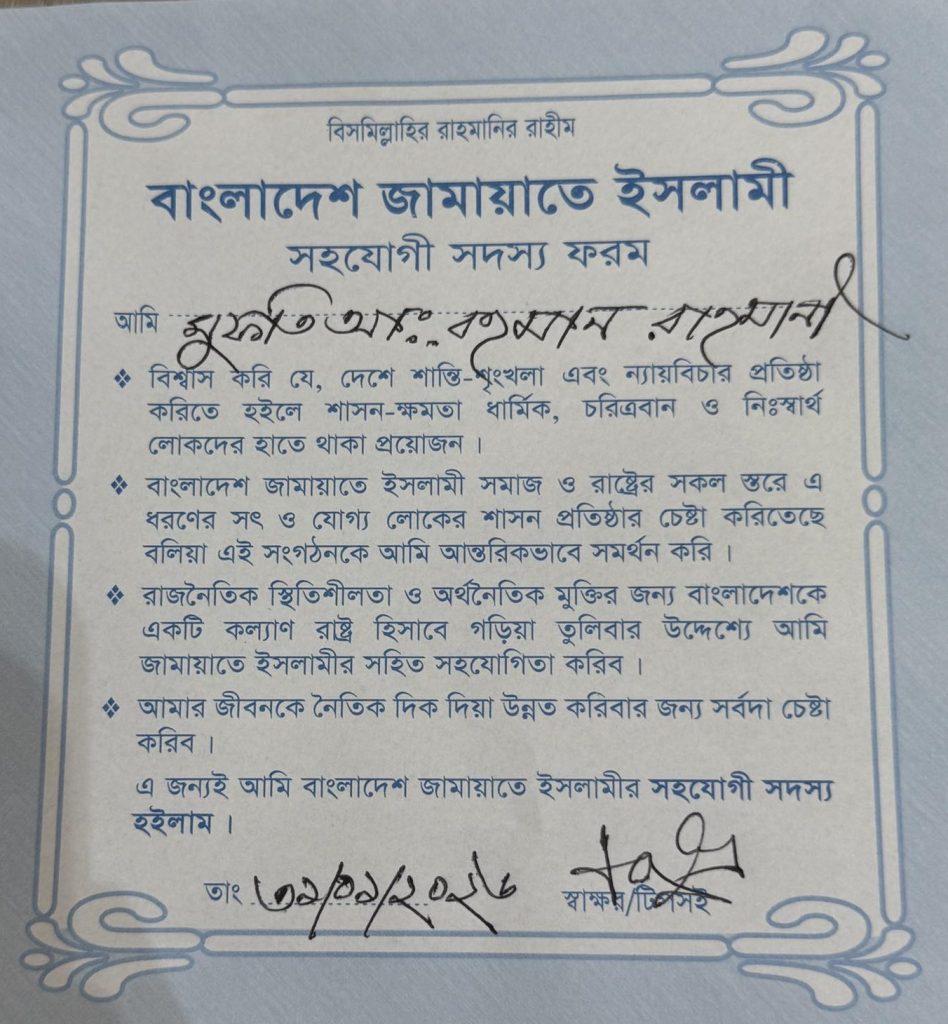 বিসমিল্লাহির রাহমানির রাহীম
বাংলাদেশ জামায়াতে ইসলামী
সহযোগী সদস্য ফরম
আমি মুফতি আঃ রহমান রাহমানী
❖ বিশ্বাস করি যে, দেশে শান্তি-শৃংখলা এবং ন্যায়বিচার প্রতিষ্ঠা
করিতে হইলে শাসন-ক্ষমতা ধার্মিক, চরিত্রবান ও নিঃস্বার্থ
লোকদের হাতে থাকা প্রয়োজন ।
❖ বাংলাদেশ জামায়াতে ইসলামী সমাজ ও রাষ্ট্রের সকল স্তরে এ
ধরণের সৎ ও যোগ্য লোকের শাসন প্রতিষ্ঠার চেষ্টা করিতেছে
বলিয়া এই সংগঠনকে আমি আন্তরিকভাবে সমর্থন করি ।
❖ রাজনৈতিক স্থিতিশীলতা ও অর্থনৈতিক মুক্তির জন্য বাংলাদেশকে
একটি কল্যাণ রাষ্ট্র হিসাবে গড়িয়া তুলিবার উদ্দেশ্যে আমি
জামায়াতে ইসলামীর সহিত সহযোগিতা করিব ।
❖ আমার জীবনকে নৈতিক দিক দিয়া উন্নত করিবার জন্য সর্বদা চেষ্টা
করিব ।
এ জন্যই আমি বাংলাদেশ জামায়াতে ইসলামীর সহযোগী সদস্য
হইলাম ।
তাং ৩১/০১/২০২৬
স্বাক্ষর/টিপসই